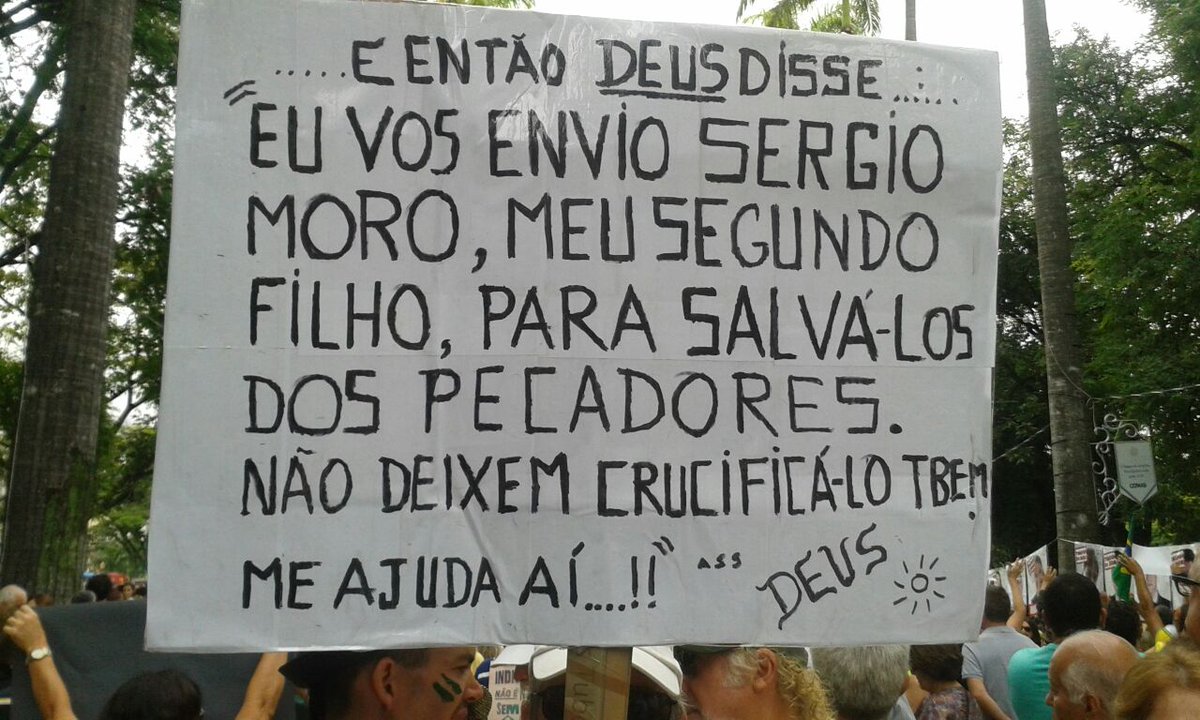 ......E ENTÃO DEUS DISSE......
"EU VOS ENVIO SERGIO
MORO, MEU SEGUNDO
FILHO, PARA SALVÁ-LOS
DOS PECADORES.
NÃO DEIXEM CRUCIFICÁ-LO TBEM!
ME AJUDA AÍ....!!" ASS DEUS